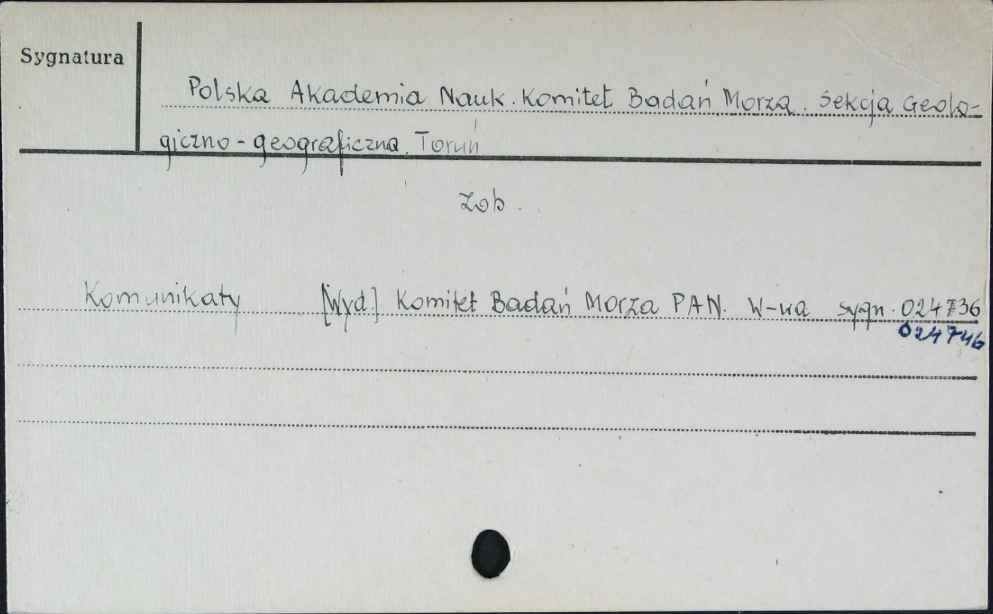 Sygnatura
Polska Akademia Nauk. Komitet Badań Morza. Sekcja Geolo-
giczno-geograficzna. Toruń
Zob.
Komunikaty [Wyd] Komitet Badań Morza PAN. W-wa sygn. 024736
024746